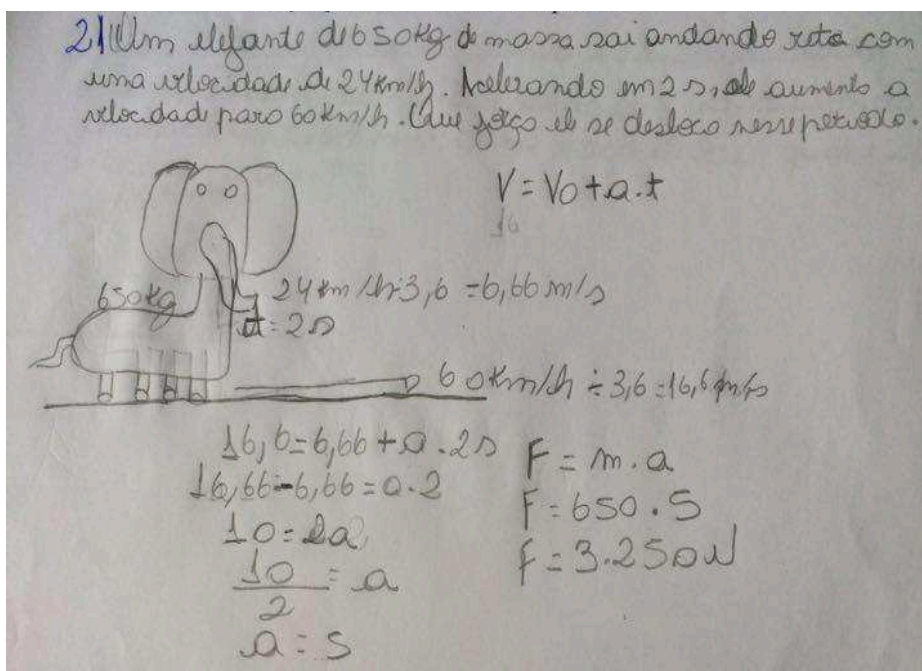 21 Um elefante de 650kg de massa sai andando reto com
uma velocidade de 24km/h. Acelerando em 2s, ele aumenta a
velocidade para 60km/h. Que força ele se desloca nesse período.
V = Vo + a.t
16
650kg
24km/h÷3,6 = 6,66m/s
t = 2s
60km/h ÷ 3,6 = 16,6 m/s
16,6 = 6,66 + a . 2s
16,66 - 6,66 = a . 2
10 = 2a
10/2 = a
a = 5
F = m . a
F = 650 . 5
F = 3.250N